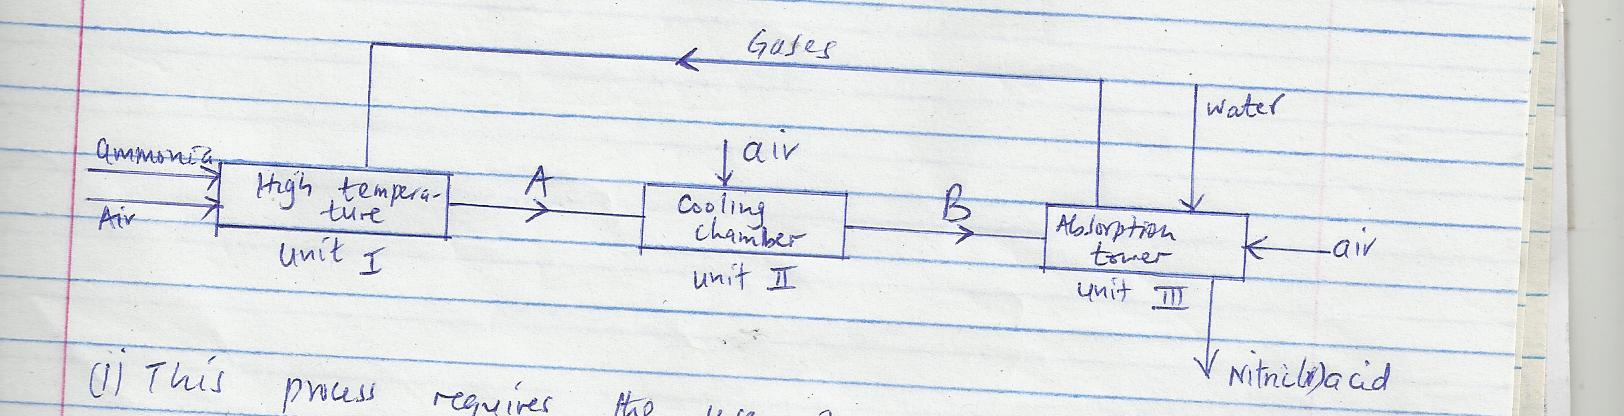 Gases
water
air
ammonia
Air
High tempera-
ture
unit I
A
Cooling
chamber
unit II
B
Absorption
tower
unit III
air
Nitric(V)acid
(i) This process requires the use